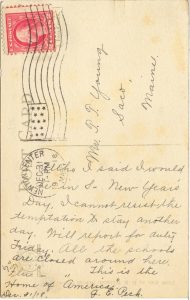 Mrs. P. P. Young
Saco
Maine.
CENTER
DEC 31
Altho I said I would
be in S. New Years
Day, I cannot resist the
temptation to stay another
day. Will report for duty
Friday. All the schools
are closed around here.
This is the
Home of "America"
Dec. 31/18